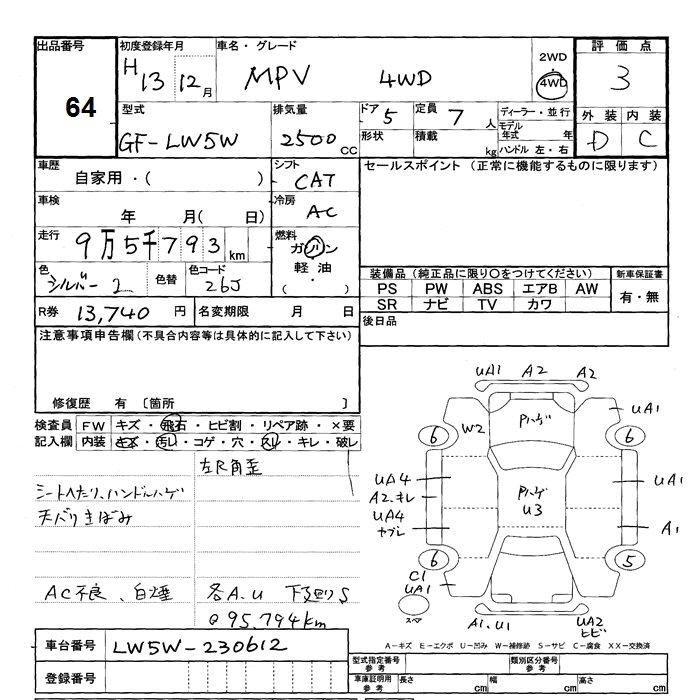 出品番号
64
初度登録年月
H13 12月
車名・グレード
MPV 4WD
2WD
・
4WD
評価点
3
外装 内装
D C
型式
GF-LW5W
排気量
2500cc
ドア 5
形状
定員 7人
積載 kg
ディーラー・並行
モデル年式 年
ハンドル 左・右
車歴
自家用・( )
シフト
CAT
車検
年 月( 日)
冷房
AC
走行
9万5千793km
燃料
ガソリン
軽油
( ・ )
色
シルバー2
色替
色コード
26J
R券 13,740円
名変期限 月 日
セールスポイント (正常に機能するものに限ります)
装備品 (純正品に限り○をつけてください)
新車保証書
PS PW ABS エアB AW
SR ナビ TV カワ
有・無
後日品
注意事項申告欄(不具合内容等は具体的に記入して下さい)
修復歴 有 〔箇所 〕
検査員記入欄
FW キズ・飛石・ヒビ割・リペア跡・×要
内装 キズ・汚レ・コゲ・穴・スレ・キレ・破レ
左尺角歪
シートヘたり、ハンドルハゲ
天バリきばみ
AC不良、白煙
各A.U 下廻りS
@95,794km
UA1 A2 A2
UA1
6
W2
Pハゲ
6
UA4
A2.キレ
UA4
ヤブレ
Pハゲ
U3
UA1
A1
6
5
C1
UA1
スペア
A1.U1
UA2
ヒビ
A-キズ E-エクボ U-凹み W-補修跡 S-サビ C-腐食 XX-交換済
車台番号 LW5W-230612
登録番号
型式指定番号
参考
類別区分番号
参考
車庫証明用
参考
長さ cm
幅 cm
高さ cm